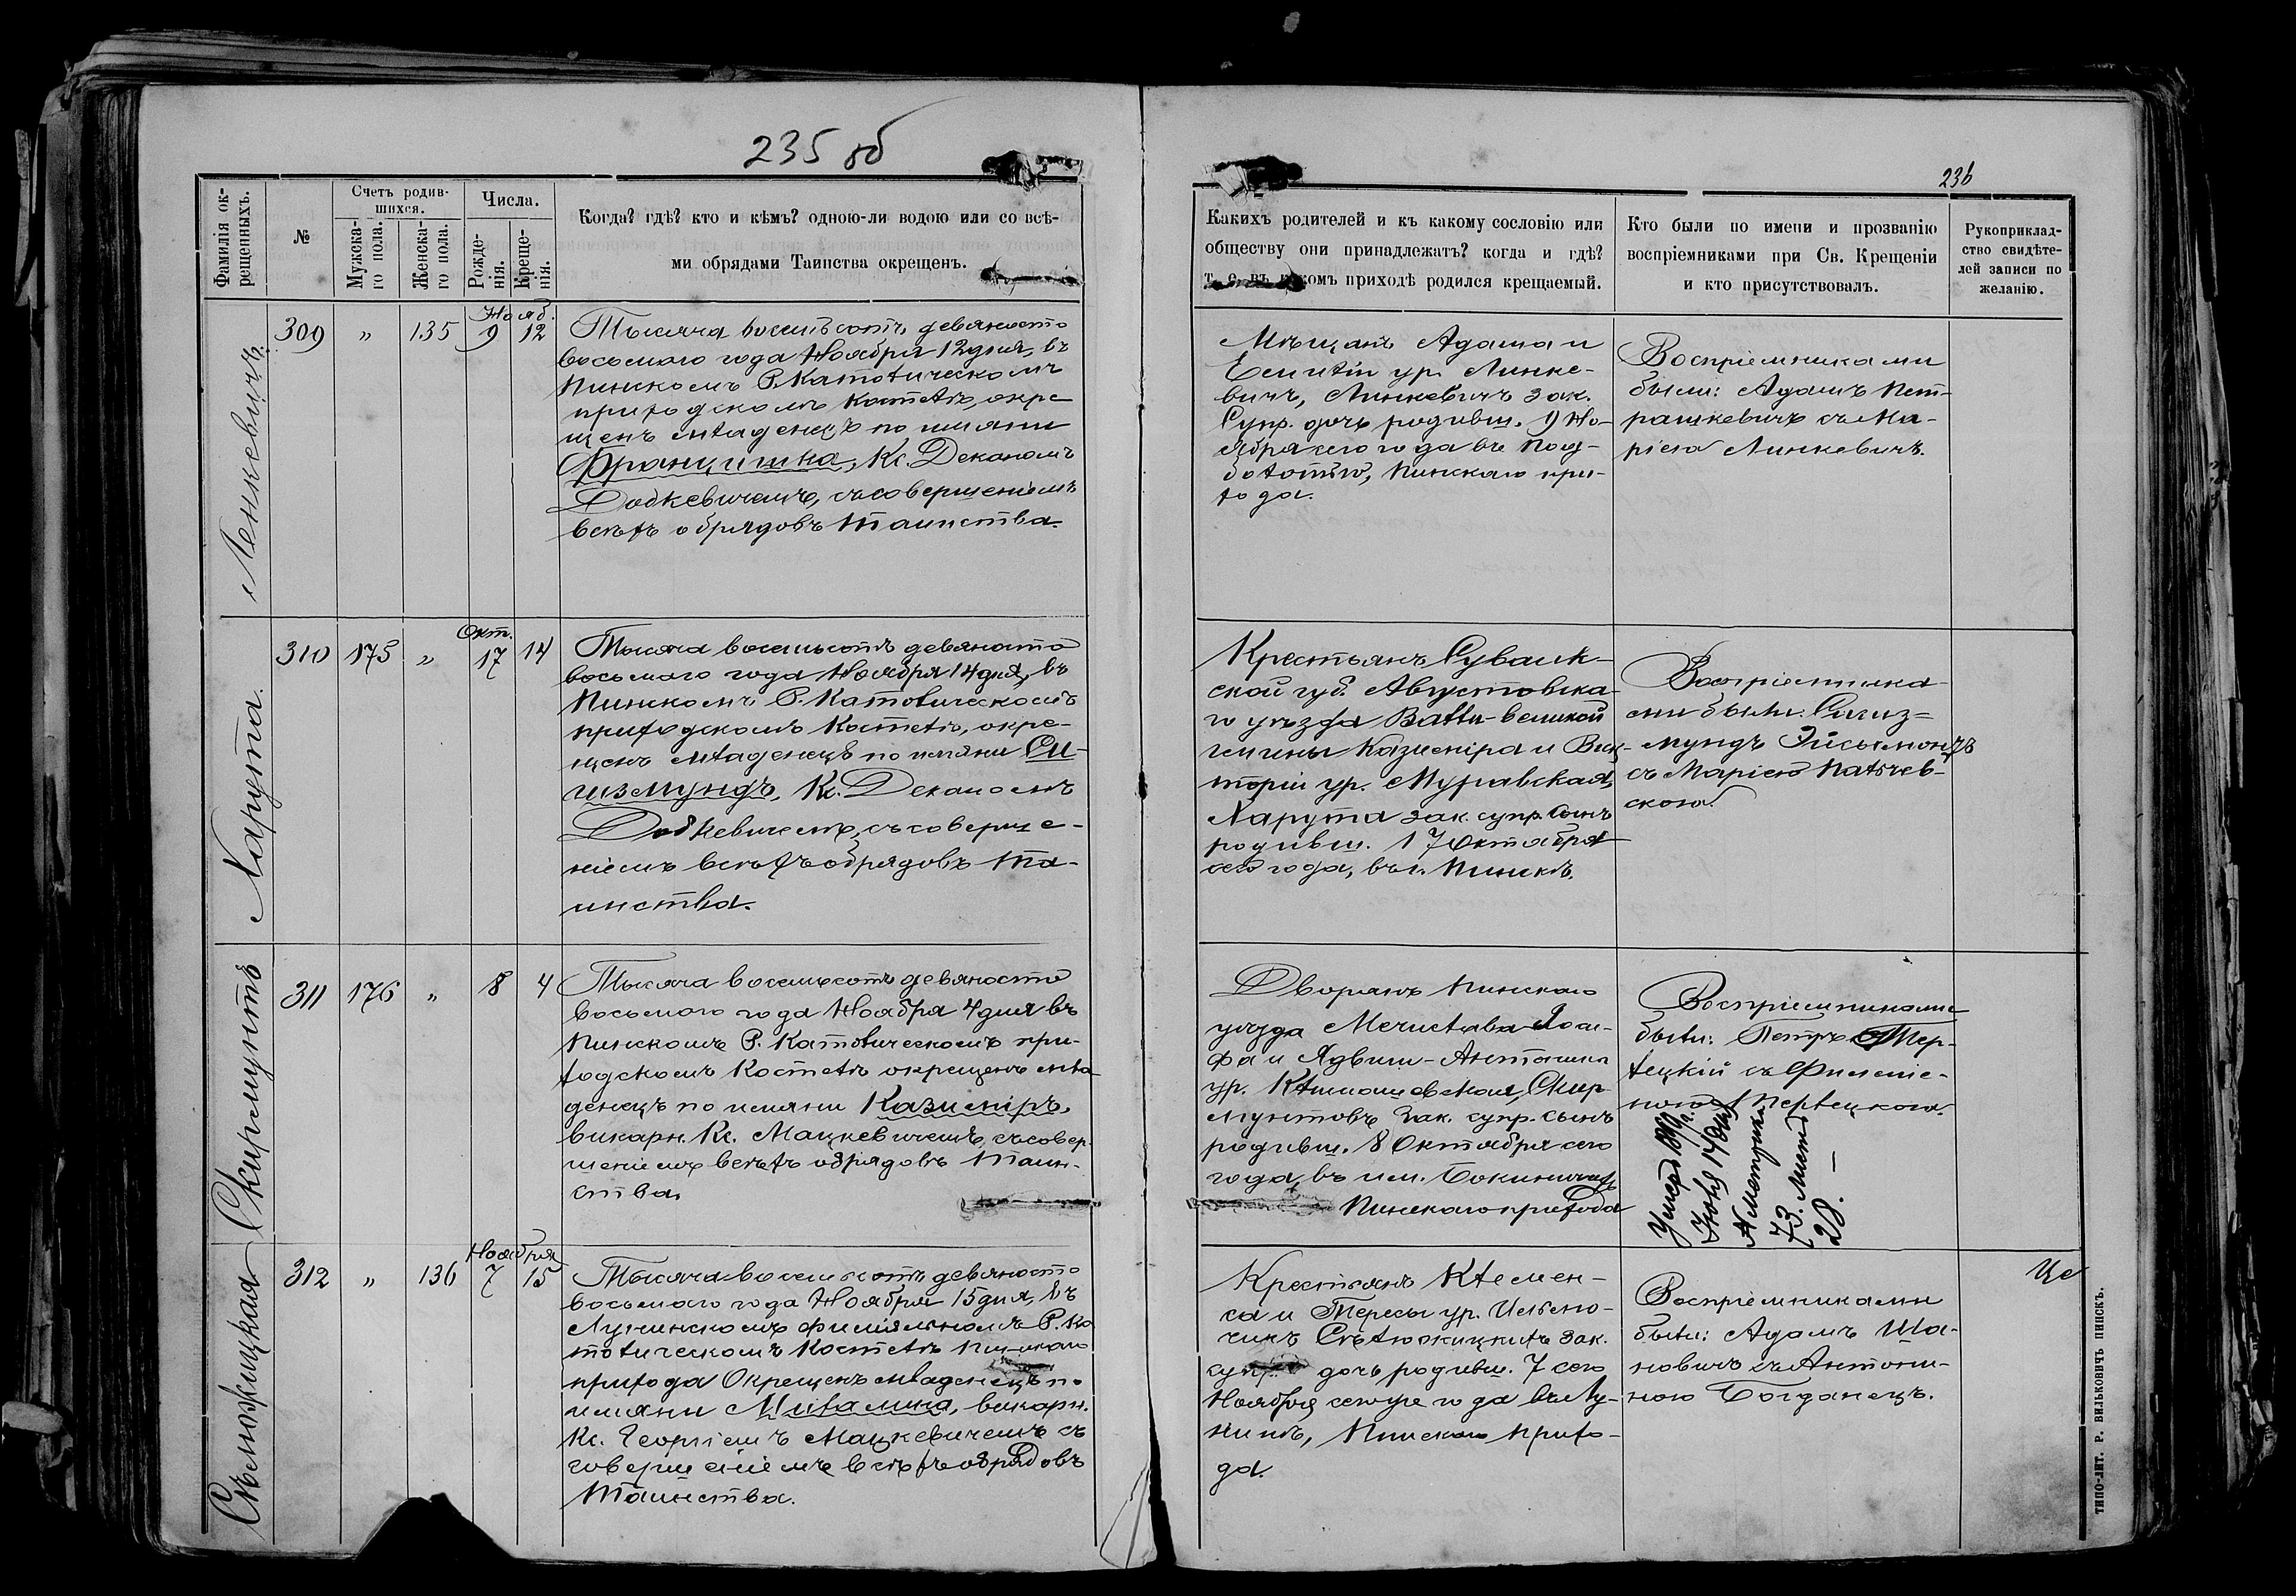 235 об
Фамилія ок-
рещенныхъ.
№
Счетъ родив-
шихся.
Мужска-
го пола.
Женска-
го пола.
Числа.
Рожде-
нія.
Креще-
нія.
Когда? гдѣ? кто и кѣмъ? одною-ли водою или со всѣ-
ми обрядами Таинства окрещенъ.
Ленкевичъ.
309 „ 135
Нояб.
9 12
Тысяча восемьсотъ девяносто
восьмого года Ноября 12 дня, въ
Пинскомъ Р. Католическомъ
приходскомъ костелѣ, окре
щенъ младенецъ по имяни
Францишка, Кс. Деканомъ
Добкевичемъ, съ совершеніемъ
всѣхъ обрядовъ Таинства.
Харута.
310 175 „
Окт.
17 14
Тысяча восемьсотъ девяносто
восьмого года Ноября 14 дня, въ
Пинскомъ Р. Католическомъ
приходскомъ Костелѣ, окре-
щенъ младенецъ по имяни Си-
гизмундъ, Кс. Деканомъ
Добкевичемъ, съ соверше-
ніемъ всѣхъ обрядовъ Та-
инства.
Скирмунтъ
311 176 „ 8 4
Тысяча восемьсотъ девяносто
восьмого года Ноября 4 дня въ
Пинскомъ Р. Католическомъ при-
ходскомъ Костелѣ окрещенъ мла
денецъ по имяни Казиміръ,
викарн. Кс. Мацкевичемъ, съ совер-
шеніемъ всѣхъ обрядовъ Таин-
ства.
Сѣможицкая
312 „ 136
Ноября
7 15
Тысяча восемьсотъ девяносто
восьмого года Ноября 15 дня, въ
Лунинскомъ филіяльномъ Р. Ка
толическомъ Костелѣ Пинскаго
прихода Окрещенъ младенецъ по
имяни Михалина, викарн.
Кс. Георгіемъ Мацкевичемъ съ
совершеніемъ всѣхъ обрядовъ
Таинства.
236
Какихъ родителей и къ какому сословію или
обществу они принадлежатъ? когда и гдѣ?
т. е. въ какомъ приходѣ родился крещаемый.
Кто были по имени и прозванію
воспріемниками при Св. Крещеніи
и кто присутствовалъ.
Рукоприклад-
ство свидѣте-
лей записи по
желанію.
Мѣщанъ Адама и
Емиліи ур. Линке-
вичъ, Линкевичъ зак.
Супр. дочь родивш. 9 Но-
ября сего года въ Под-
болотью, Пинскаго при-
хода.
Воспріемниками
были: Адамъ Пет-
рашкевичъ съ Ма-
ріею Линкевичъ.
Крестьянъ Сувалк-
ской губ. Августовска-
го уѣзда Балли-великой
гмины Казиміра и Вик-
торіи ур. Муравская,
Харута зак. супр. сынъ
родивш. 17 Октября
сего года, въ г. Пинскѣ.
Воспріемника-
ми были: Сигиз=
мундъ Эйсымонтъ
съ Маріею Пальчев-
скою.
Дворянъ Пинскаго
уѣзда Мечислава Іози-
фа и Ядвиги-Антонины
ур. Клитошевская, Скир
мунтовъ зак. супр. сынъ
родивш. 8 Октября сего
года, въ им.
Пинскаго прихода
Воспріемниками
были: Петръ Тер-
лецкій съ
Терлецкою.
Умеръ
Іюня 14 дня
№ метрики
73. Листъ
28. —
Крестьянъ Клемен-
са и Тересы ур.
Сѣможицкихъ зак.
супр. дочь родивш. 7 сего
Ноября сего года въ Лу-
нинѣ, Пинскаго прихо-
да.
Воспріемниками
были: Адамъ Ша-
новичъ съ Антони-
ною Богданецъ.
ТИПО-ЛИТ. Р. ВИЛЬКОВИЧЪ ПИНСКЪ.